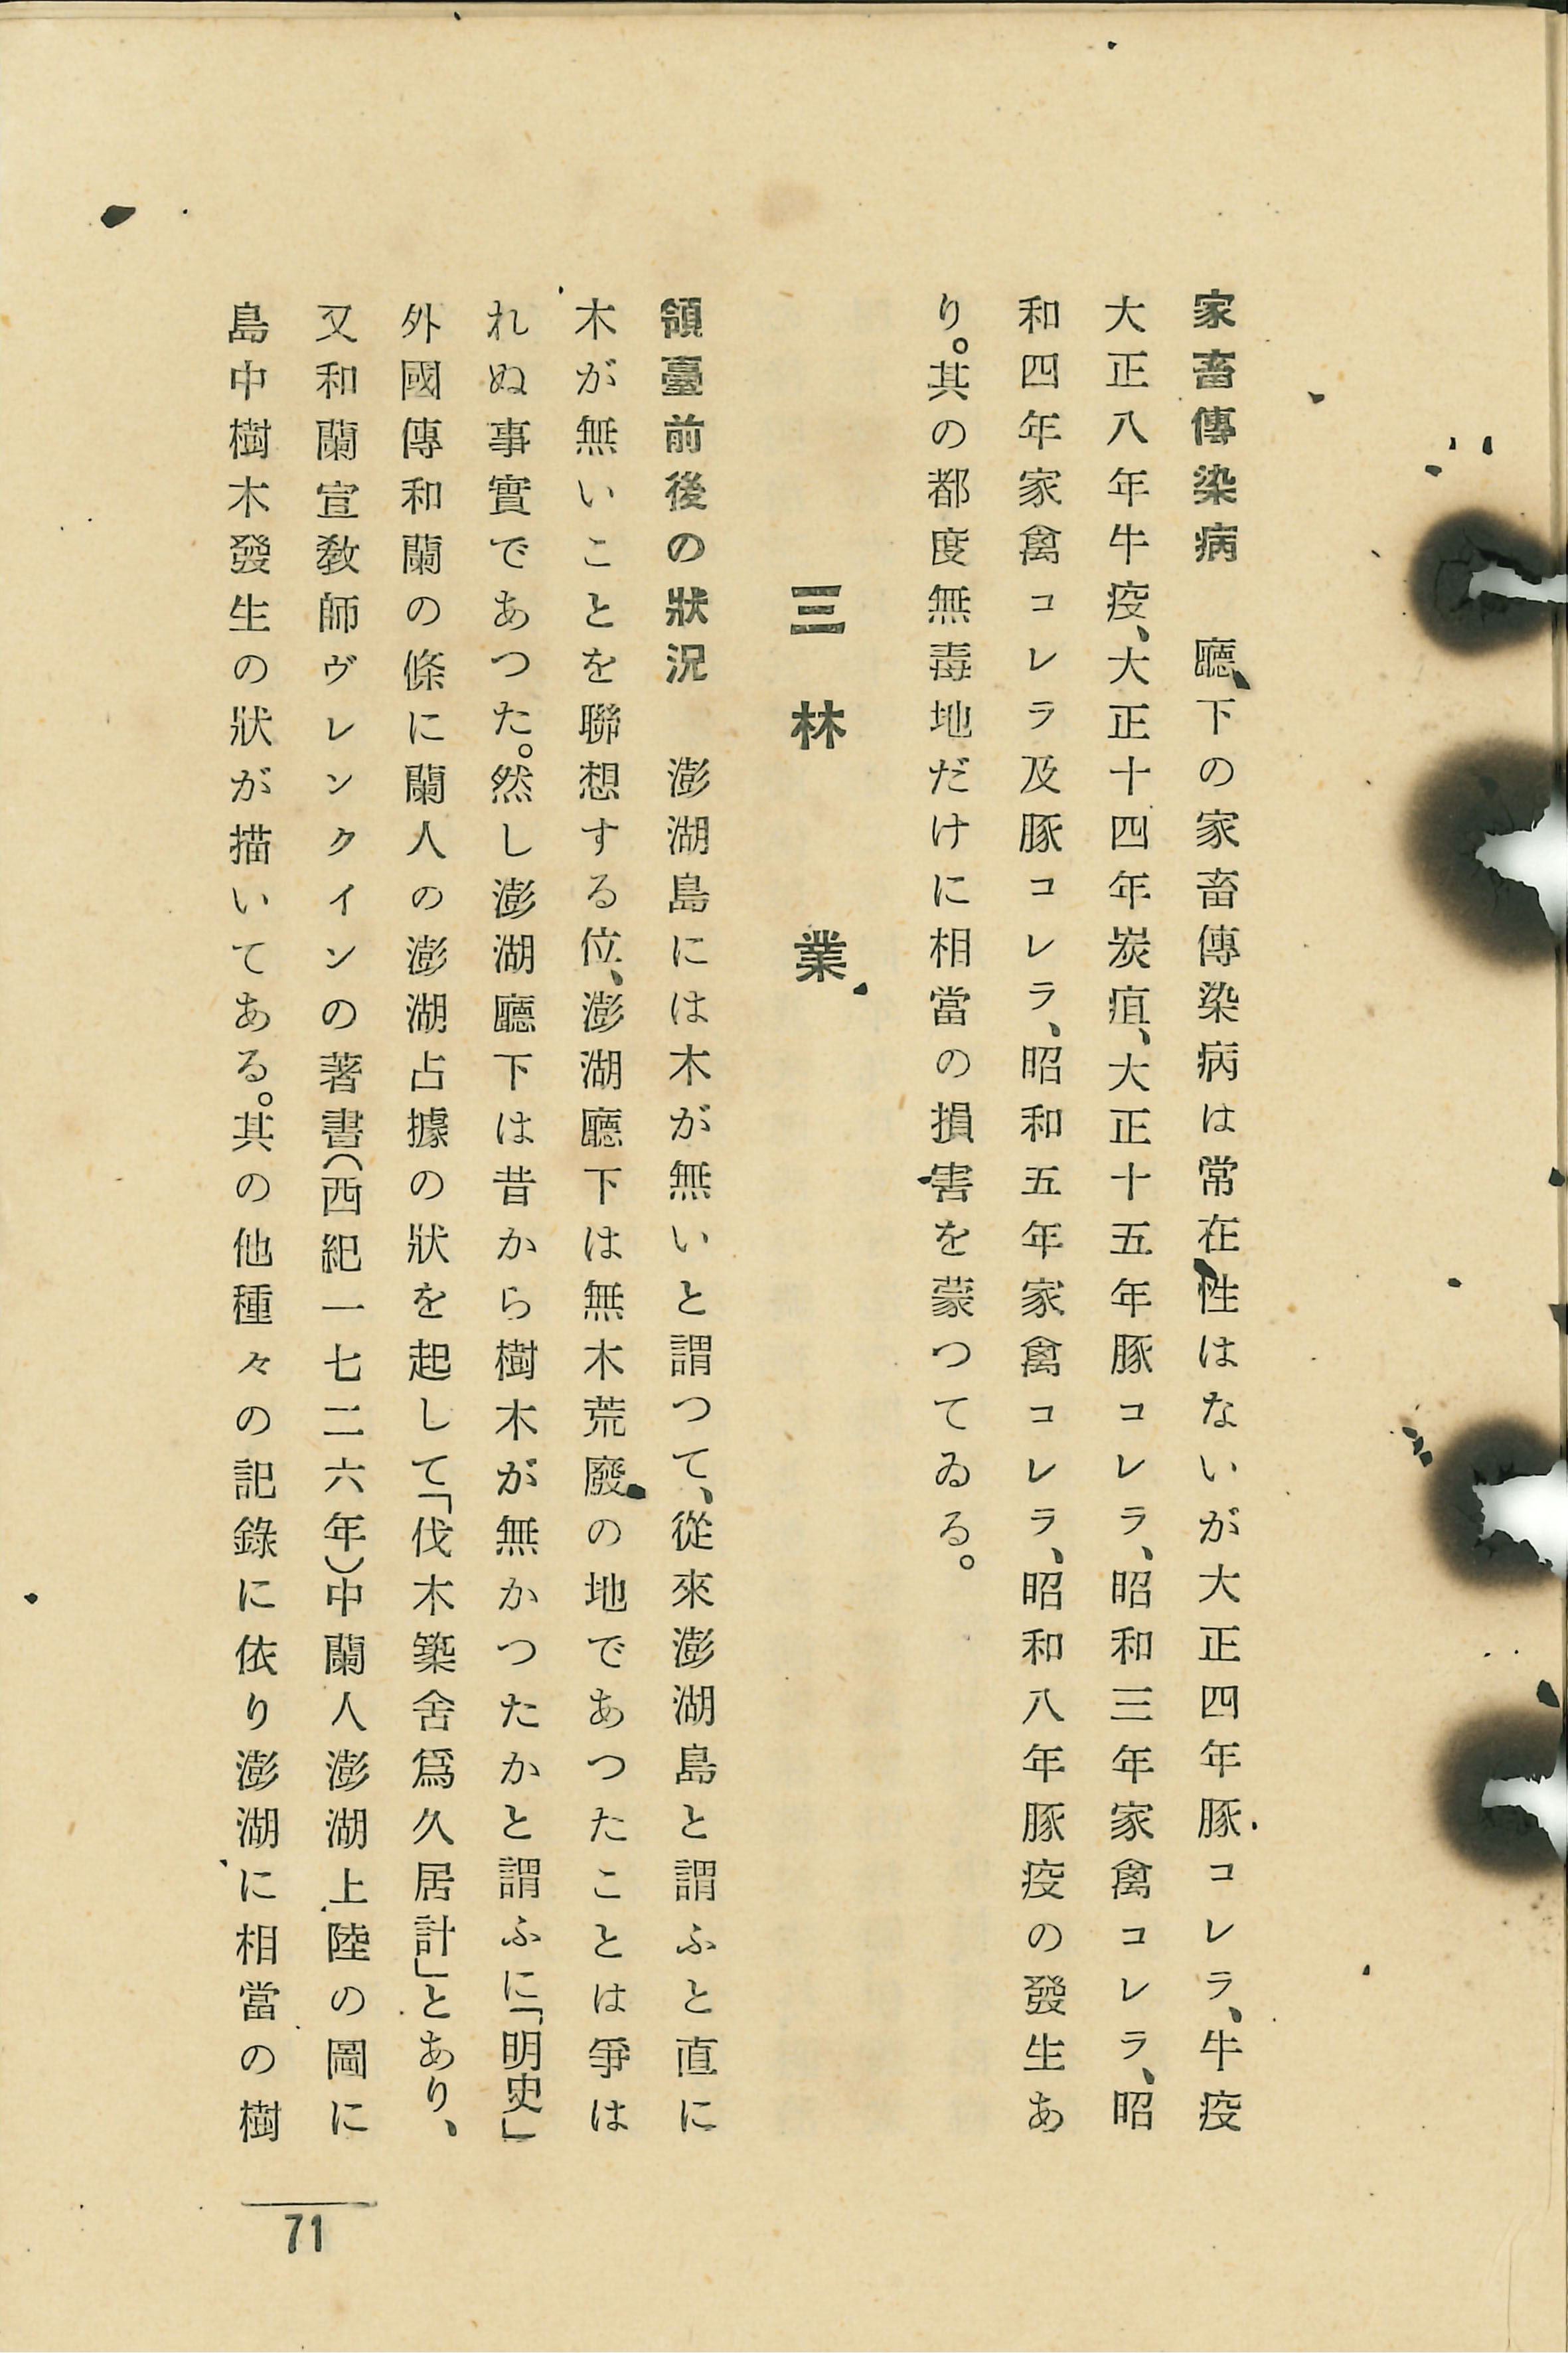 家畜傳染病　廳下の家畜傳染病は常在性はないが大正四年豚コレラ、牛疫
大正八年牛疫、大正十四年炭疽、大正十五年豚コレラ、昭和三年家禽コレラ、昭
和四年家禽コレラ及豚コレラ、昭和五年家禽コレラ、昭和八年豚疫の發生あ
り。其の都度無毒地だけに相當の損害を蒙つてゐる。
三　林　業
領臺前後の狀況　澎湖島には木が無いと謂つて、從來澎湖島と謂ふと直に
木が無いことを聯想する位、澎湖廳下は無木荒廢の地であつたことは爭は
れぬ事實であつた。然し澎湖廳下は昔から樹木が無かつたかと謂ふに「明史」
外國傳和蘭の條に蘭人の澎湖占據の狀を起して「伐木築舍爲久居計」とあり、
又和蘭宣敎師ヴレンクインの著書（西紀一七二六年）中蘭人澎湖上陸の圖に
島中樹木發生の狀が描いてある。其の他種々の記錄に依り澎湖に相當の樹
71